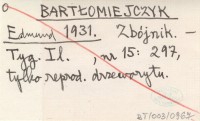 BARTŁOMIEJCZYK
Edmund 1931. Zbójnik. –
Tyg. Il. , nr 15: 297,
tylko reprod. drzeworytu.
ZT/003/0962